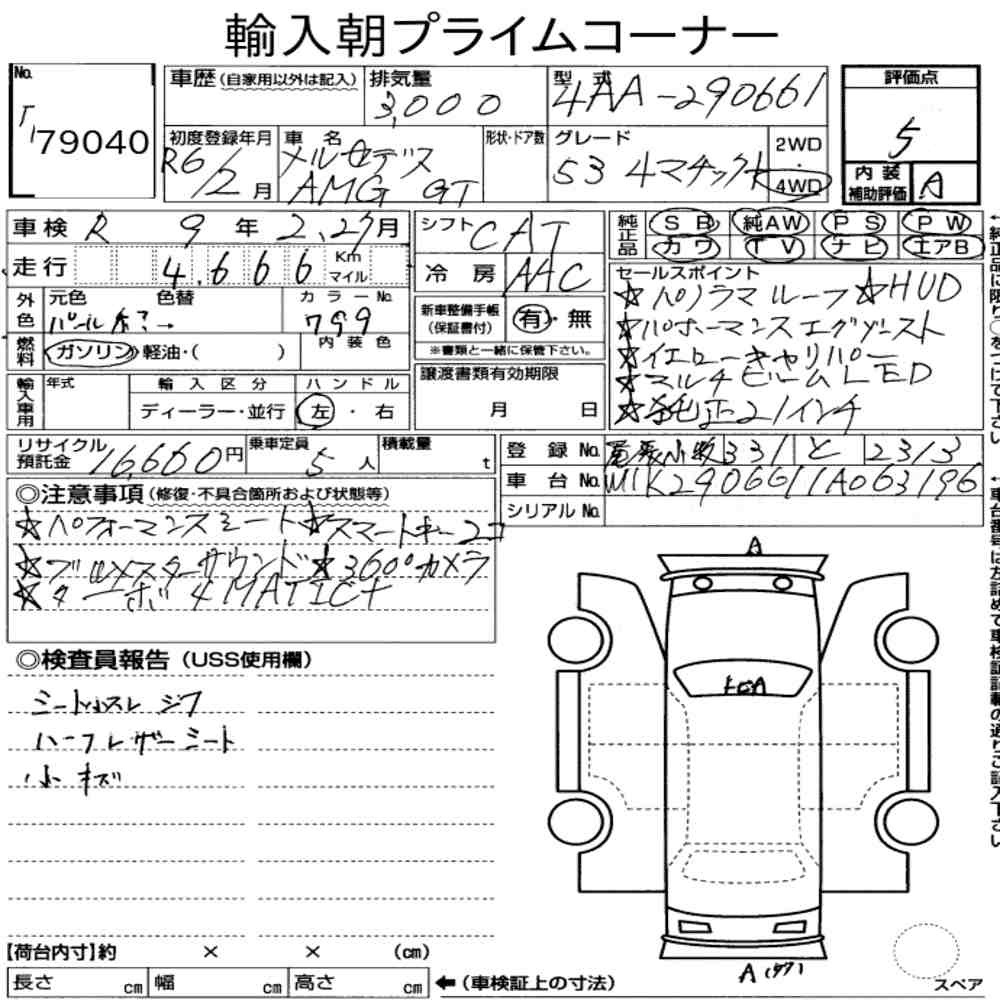 輸入朝プライムコーナー
No.
79040
車歴(自家用以外は記入)
排気量
3,000
型式
4AA-290661
評価点
5
初度登録年月
R6/2月
車名
メルセデス
AMG GT
形状・ドア数
グレード
53 4マチック+
2WD
・
4WD
内装
補助評価
A
車検 R 9年2,27月
シフト CAT
純正品
SR 純AW PS PW
カワ TV ナビ エアB
走行 4,666 Km
マイル
冷房 AAC
セールスポイント
☆パノラマルーフ☆HUD
☆パホーマンスエグゾースト
☆イエローキャリパー
☆マルチビームLED
☆純正21インチ
外色
元色
色替
パール
?→
カラーNo.
799
新車整備手帳
(保証書付)
有・無
※書類と一緒に保管下さい。
燃料
ガソリン・軽油・( )
内装色
輸入車用
年式
輸入区分
ディーラー・並行
ハンドル
左・右
譲渡書類有効期限
月 日
リサイクル
預託金
16,660円
乗車定員
5人
積載量
t
登録No.
331 と 2313
車台No. W1K2906611A063196
シリアルNo.
◎注意事項(修復・不具合箇所および状態等)
☆パフォーマンスシート☆スマートキー2コ
☆ブルメスターサウンド☆360°カメラ
☆ターボ 4MATIC+
◎検査員報告(USS使用欄)
シート小スレ シワ
ハーフレザーシート
小キズ
A
トビA
A(ﾀﾜ)
スペア
【荷台内寸】約 × × (cm)
長さ cm 幅 cm 高さ cm
←(車検証上の寸法)
←純正品に限り○をつけて下さい
←車台番号は左詰めで車検証記載の通りご記入下さい